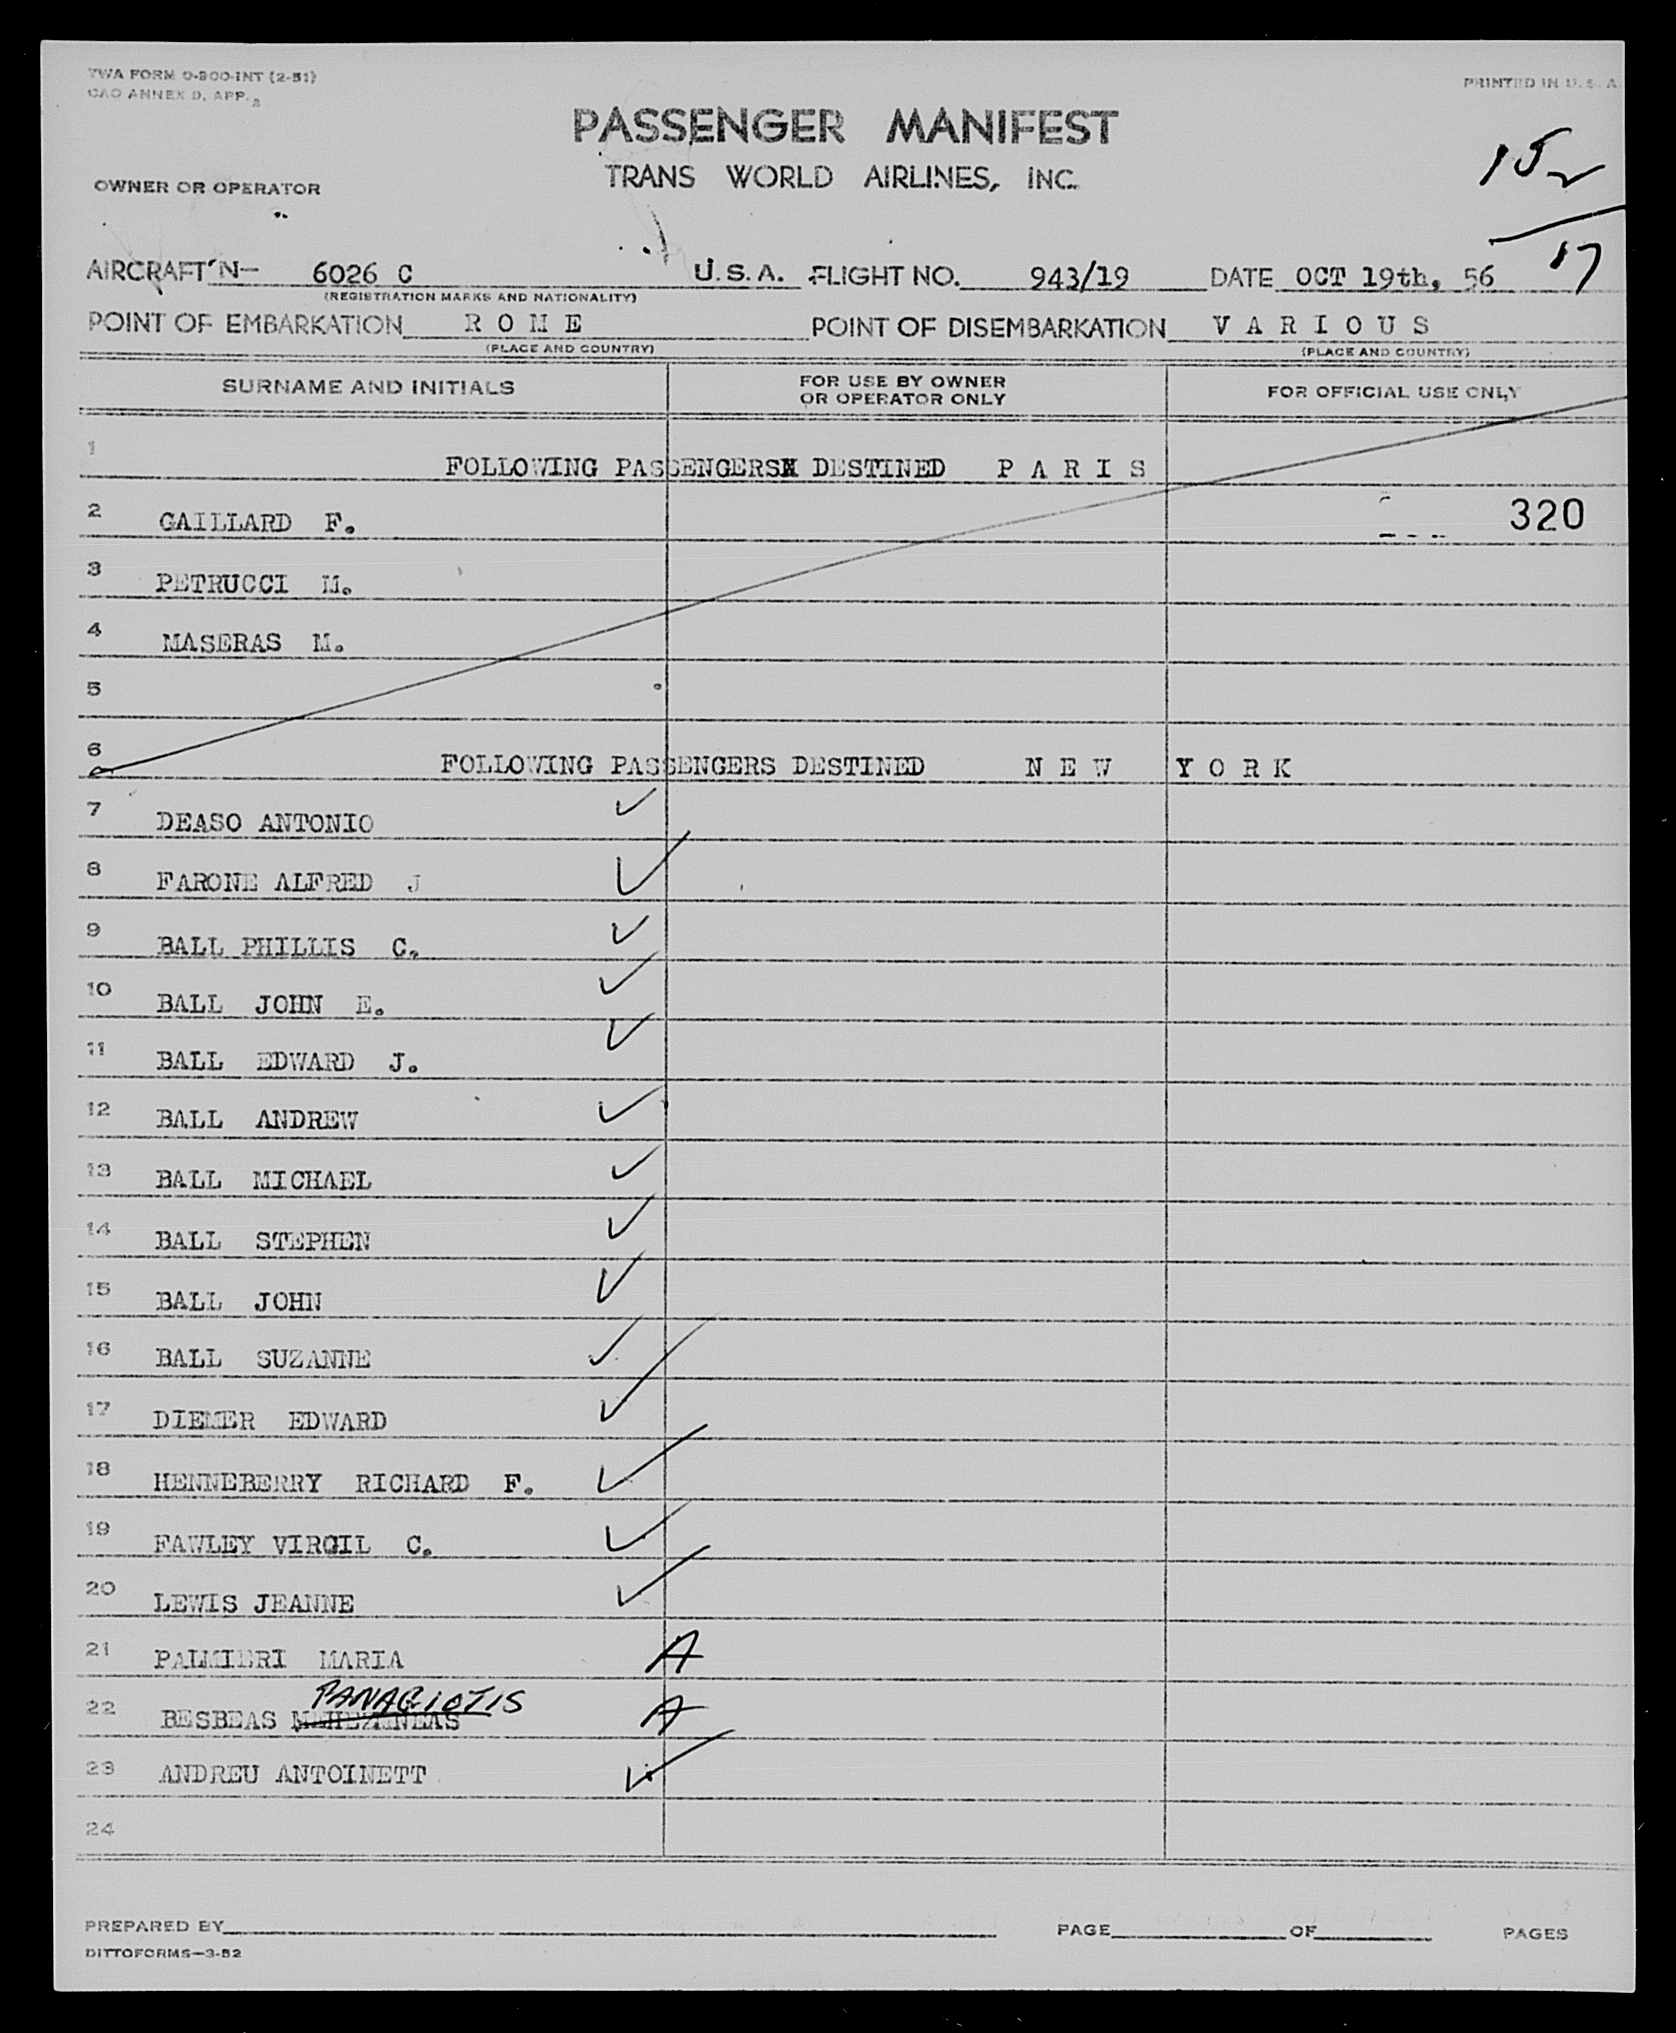 TWA FORM 0-800-INT (2-51)
CAO ANNEX D, APP. 2
PRINTED IN U. S. A.
PASSENGER MANIFEST
TRANS WORLD AIRLINES, INC.
152
17
OWNER OR OPERATOR
AIRCRAFT N- 6026 C U.S.A. FLIGHT NO. 943/19 DATE OCT 19th, 56
(REGISTRATION MARKS AND NATIONALITY)
POINT OF EMBARKATION R O M E POINT OF DISEMBARKATION V A R I O U S
(PLACE AND COUNTRY) (PLACE AND COUNTRY)
SURNAME AND INITIALS FOR USE BY OWNER OR OPERATOR ONLY FOR OFFICIAL USE ONLY
1 FOLLOWING PASSENGERS DESTINED P A R I S
2 GAILLARD F. 320
3 PETRUCCI M.
4 MASERAS M.
5
6 FOLLOWING PASSENGERS DESTINED N E W Y O R K
7 DEASO ANTONIO ✓
8 FARONE ALFRED J ✓
9 BALL PHILLIS C. ✓
10 BALL JOHN E. ✓
11 BALL EDWARD J. ✓
12 BALL ANDREW ✓
13 BALL MICHAEL ✓
14 BALL STEPHEN ✓
15 BALL JOHN ✓
16 BALL SUZANNE ✓
17 DIEMER EDWARD ✓
18 HENNEBERRY RICHARD F. ✓
19 FAWLEY VIRGIL C. ✓
20 LEWIS JEANNE ✓
21 PALMIERI MARIA A
22 BESBEAS PANAGIOTIS A
23 ANDREU ANTOINETT ✓
24
PREPARED BY PAGE OF PAGES
DITTOFORMS—3-52